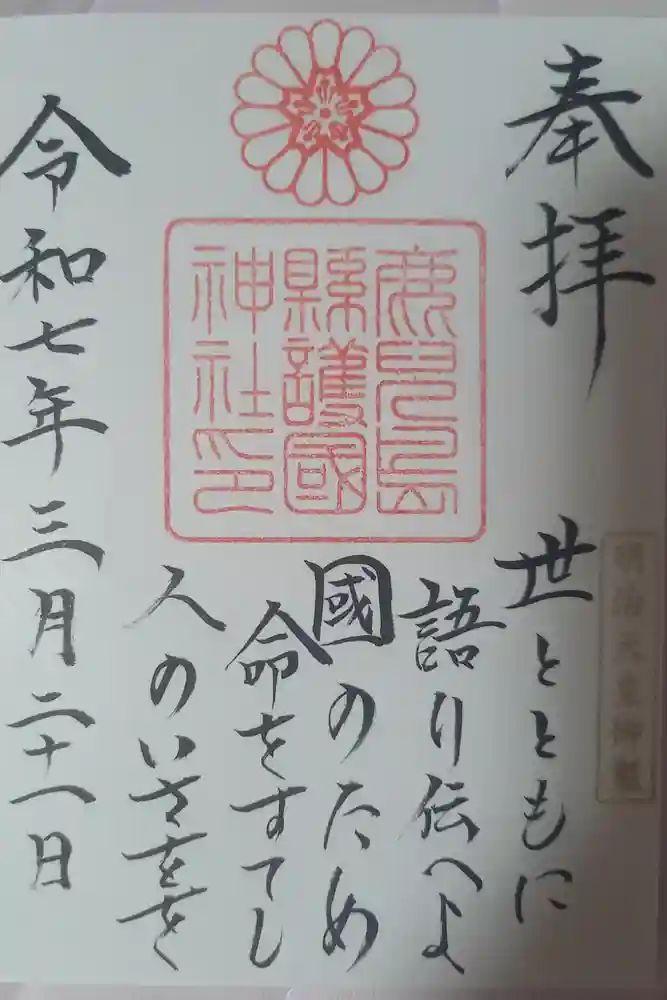 奉拝
明治天皇御製
世とともに
語り伝へよ
國のため
命をすてし
人のいさをを
鹿兒島
縣護國
神社印
令和七年三月二十一日